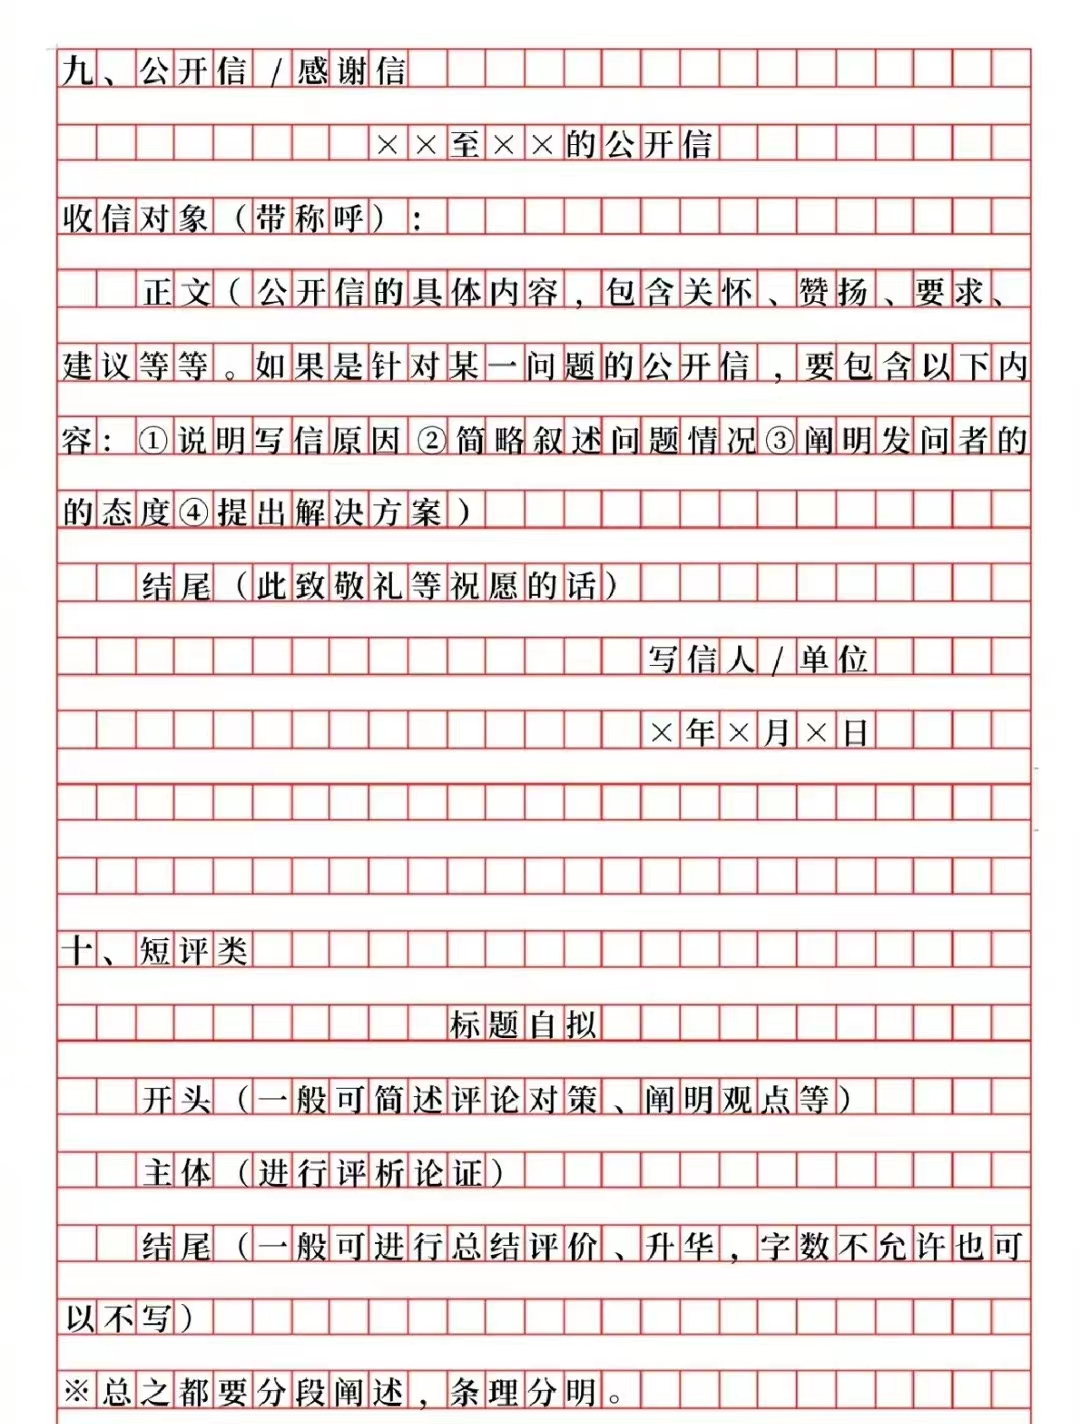 九、公开信/感谢信
××至××的公开信
收信对象（带称呼）：
正文（公开信的具体内容，包含关怀、赞扬、要求、
建议等等。如果是针对某一问题的公开信，要包含以下内
容：①说明写信原因②简略叙述问题情况③阐明发问者的
的态度④提出解决方案）
结尾（此致敬礼等祝愿的话）
写信人/单位
×年×月×日
十、短评类
标题自拟
开头（一般可简述评论对策、阐明观点等）
主体（进行评析论证）
结尾（一般可进行总结评价、升华，字数不允许也可
以不写）
※总之都要分段阐述，条理分明。